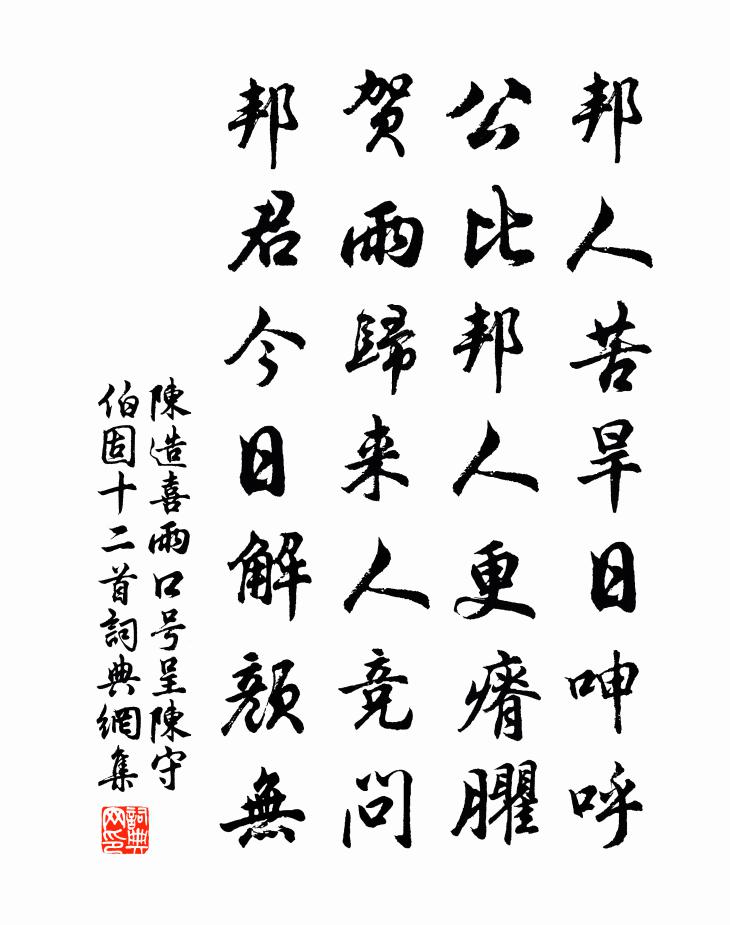 邦人苦旱日呻呼
公比邦人更瘠臞
贺雨歸来人竞问
邦君今日解颜無
陳造喜雨口号呈陳守
伯固十二首詞典網集
詞典网印